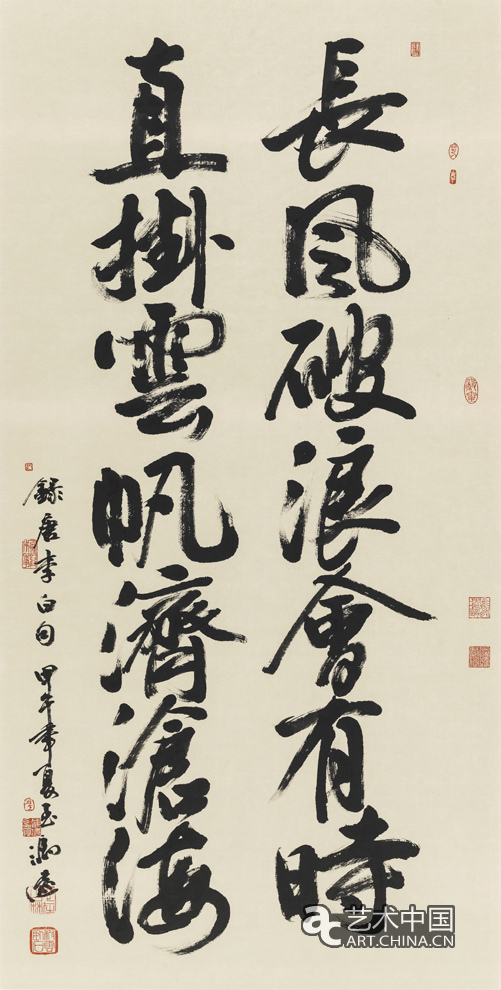 長風破浪會有時
直掛雲帆濟滄海
錄唐李白句 甲午年夏至
艺术中国
ART.CHINA.CN